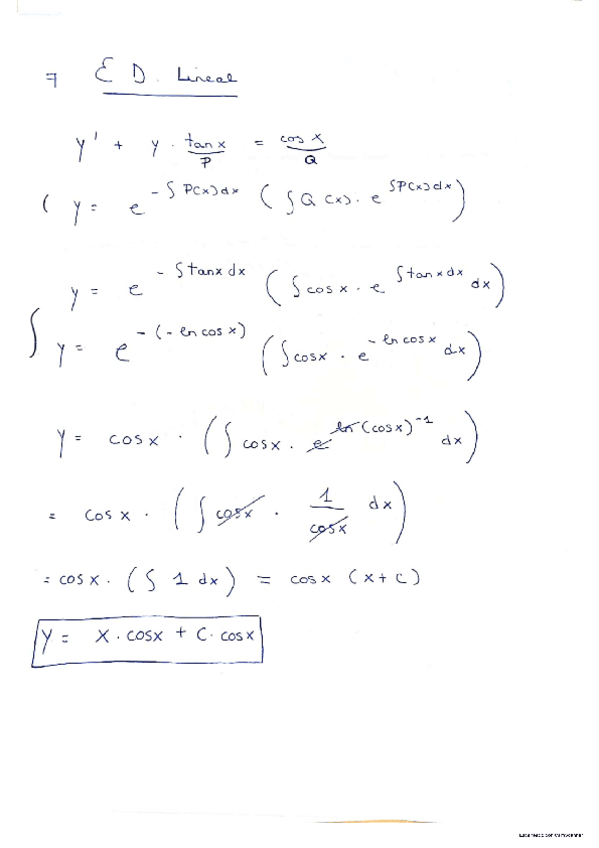 7 E D. Lineal
y' + y · tan x = cos x
P Q
( y = e^(-∫P(x)dx) (∫Q(x)· e^(∫P(x)dx))
y = e^(-∫tanx dx) (∫cos x · e^(∫tanx dx) dx)
∫ y = e^(-(-ln cos x)) (∫cosx · e^(-ln cos x) dx)
y = cos x · (∫ cos x · e^(ln(cos x)^-1) dx)
= cos x · (∫ cosx · 1/cosx dx)
= cos x · (∫ 1 dx) = cosx (x + C)
y = x · cosx + C · cosx